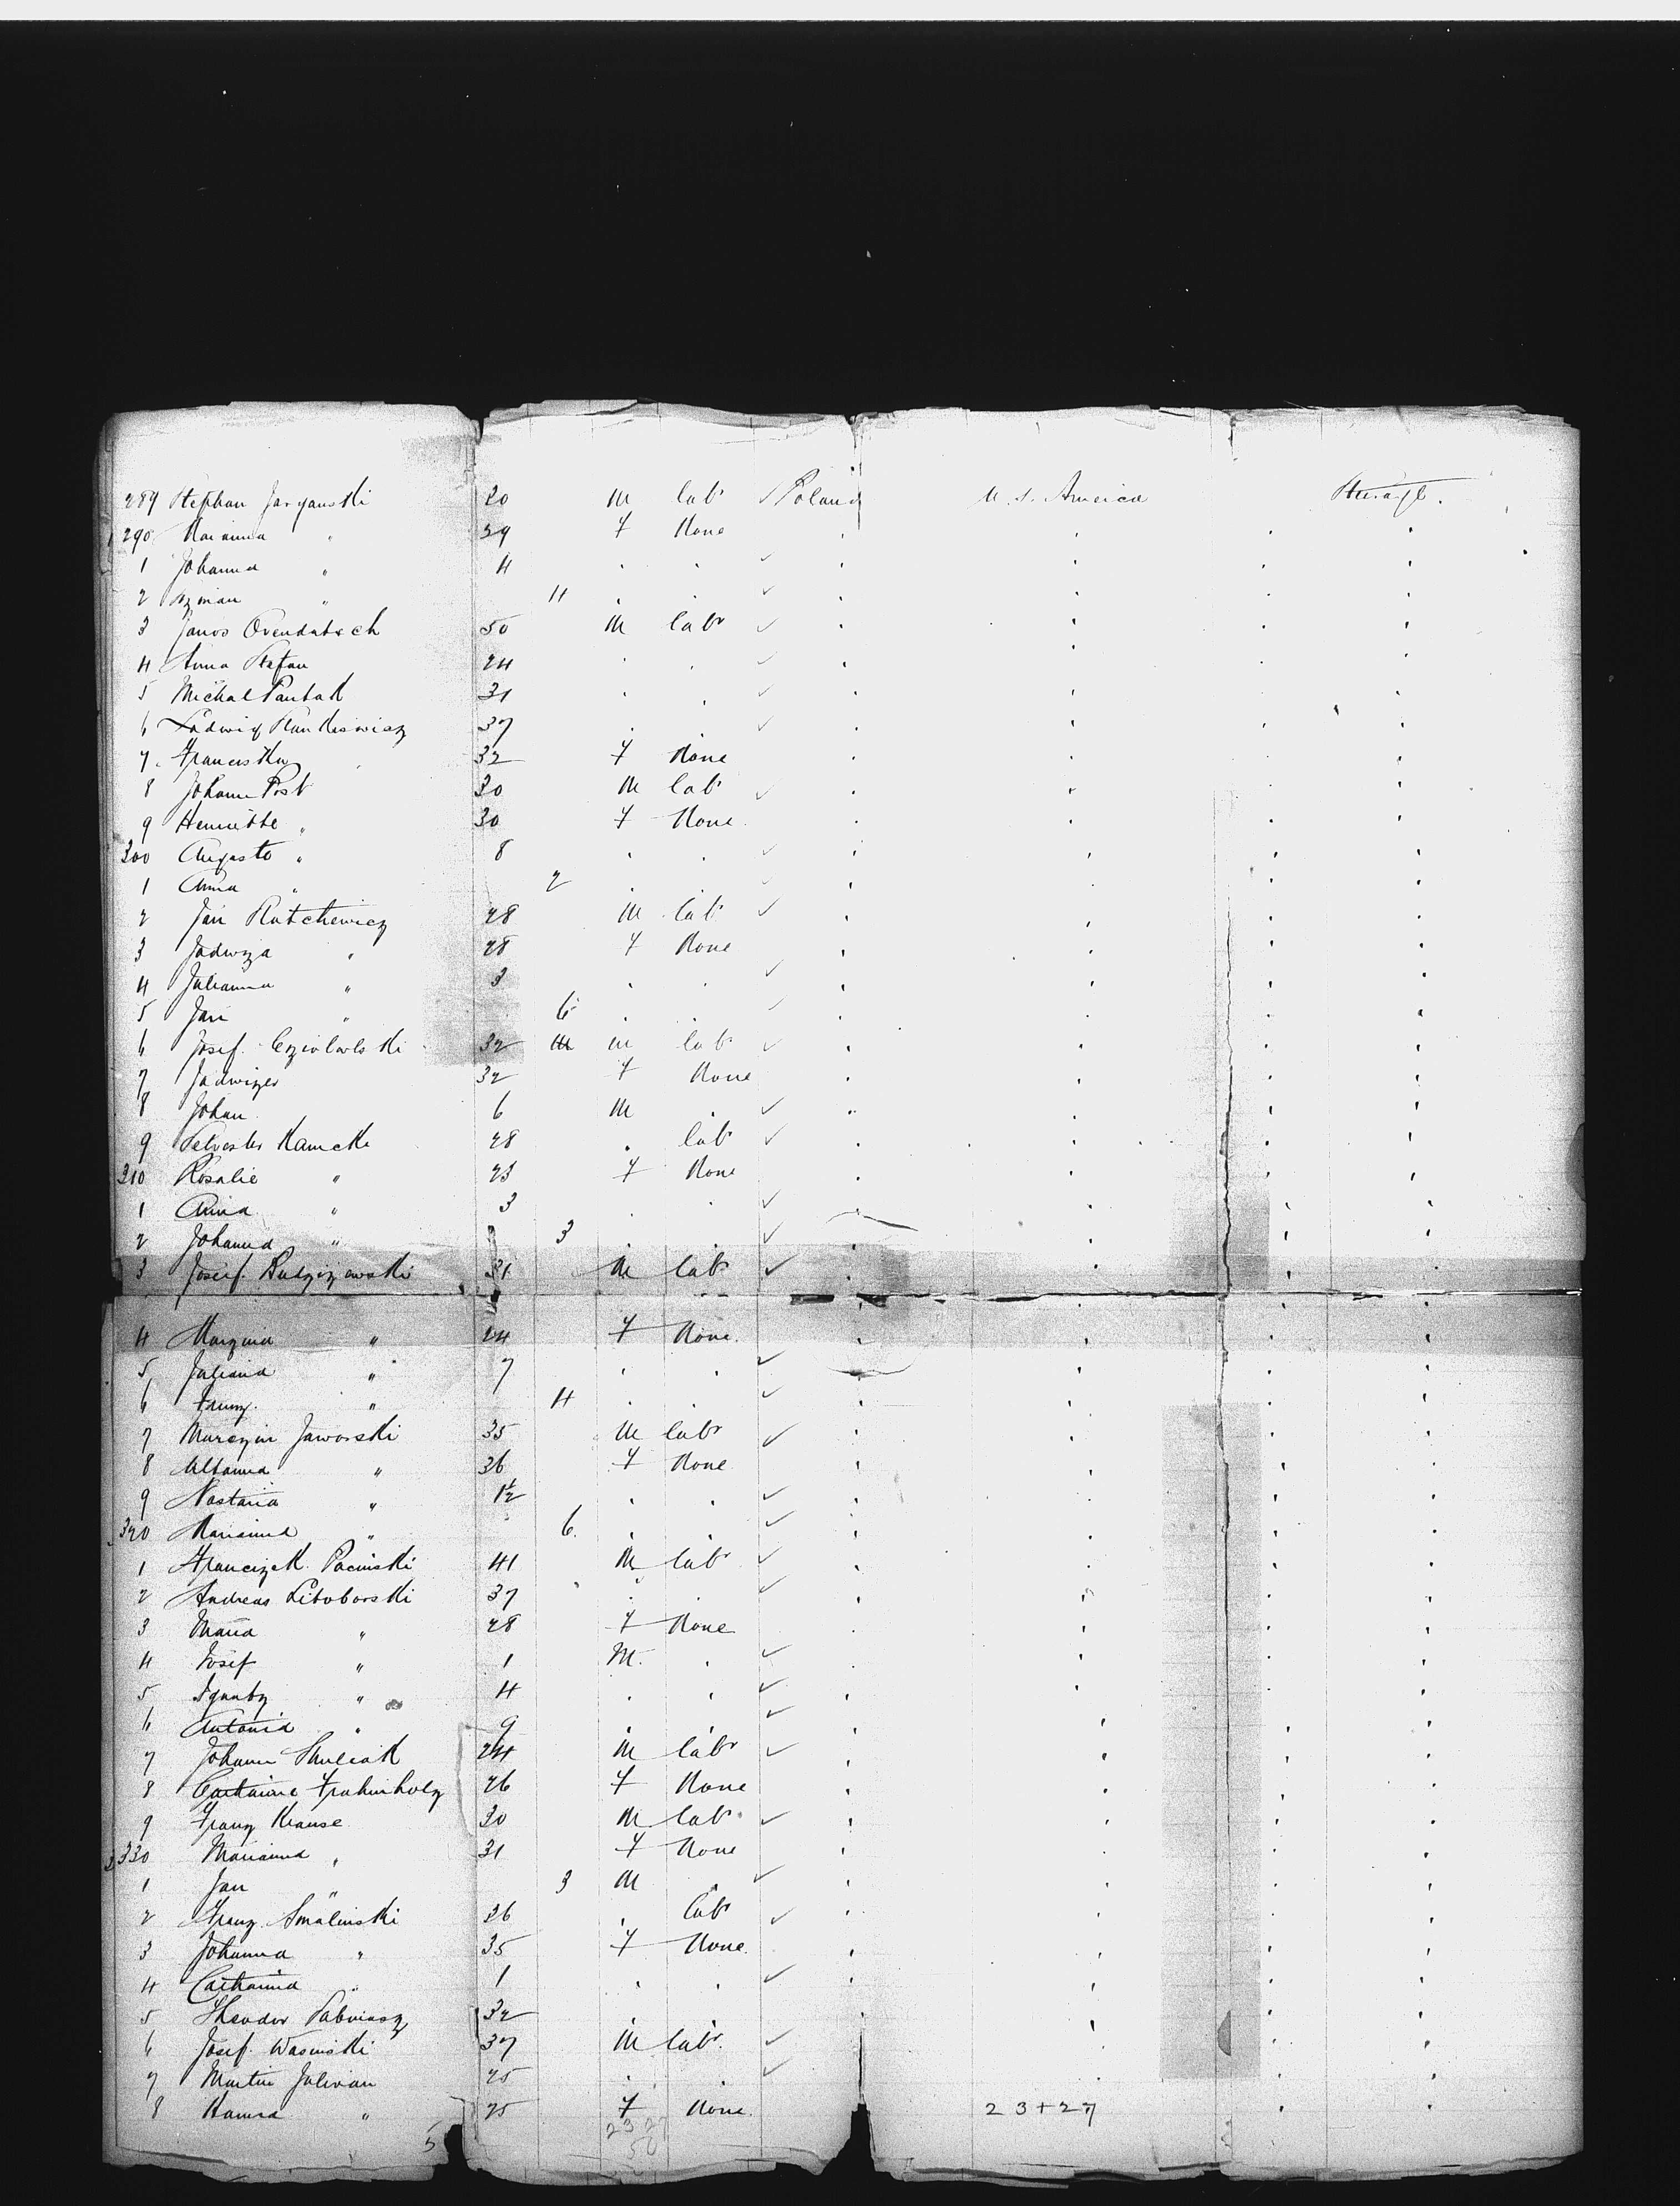 289 Stephan Jarganski 20 M lab Poland U. S. America Steerage.
290 Marianna " 29 F None
1 Johanna " 4
2 " 11
3 Janos 50 M labr
4 Anna Stefan 24
5 Michal Pantak 31
6 Ludwig 37
7 Franciska 32 F None
8 Johann Post 30 M lab
9 Henriette " 30 F None
300 Auguste " 8
1 Anna " 2
2 Jan Rutchewicz 28 M lab
3 Jadwiga " 28 F None
4 Julianna " 3
5 Jan " 6
6 Josef 32 M lab
7 Jadwiga 32 F None
8 Johan 6 M
9 Silvester Kamcke 28 lab
310 Rosalie " 23 F None
1 Anna " 3
2 Johanna " 3
3 Josef. 31 M lab
4 " 24 F None.
5 Juliana " 7
6 Franz. " 4
7 Marczin Jaworski 35 M labr
8 " 36 F None
9 Nastazia " 1½
320 Marianna " 6.
1 Francizek Pacinski 41 M lab
2 Andreas Litoborski 37
3 Maria " 28 F None
4 Josef " 1 M.
5 Ignatz " 4
6 Antonia " 9
7 Johann 24 M labr
8 26 F None
9 Franz Krause 30 M lab
330 Marianna " 31 F None
1 Jan " 3 M
2 Franz. Smalinski 36 lab
3 Johanna " 35 F None.
4 Catharina " 1
5 Theodor 32
6 Josef Wasinski 37 M lab.
7 Martin Julivan 25
8 " 25 F None. 23+27
5 23 27
50